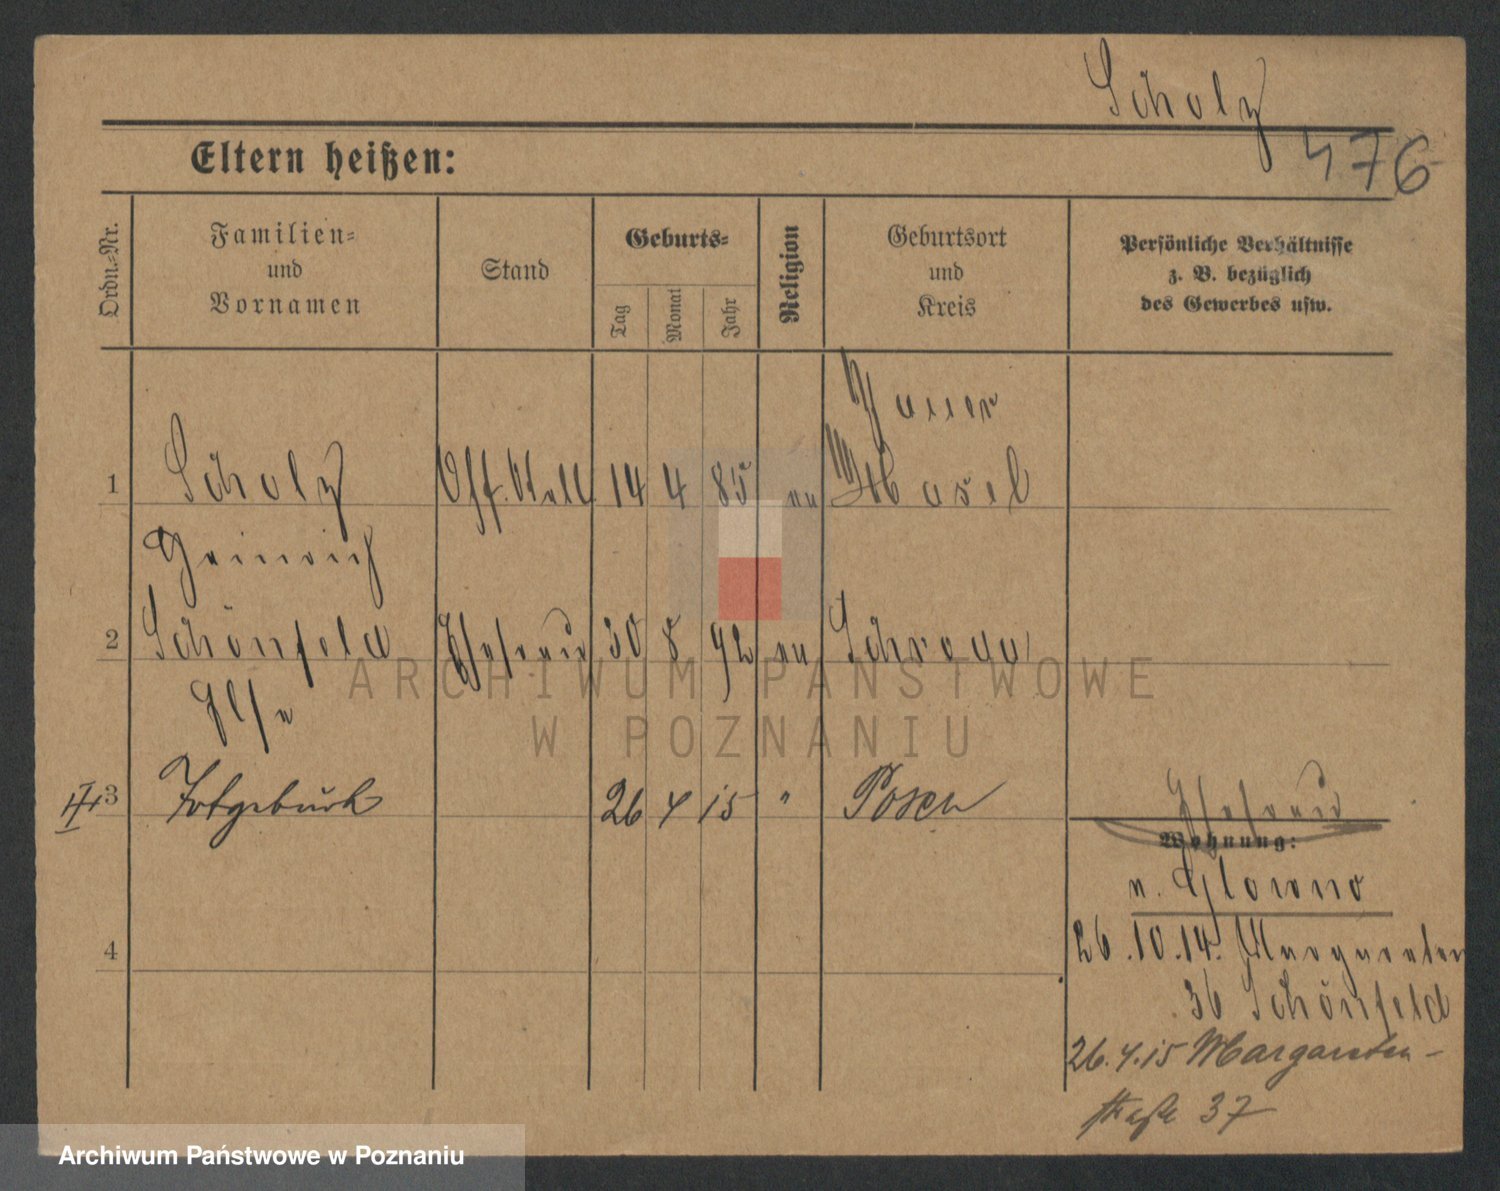 Scholz
476
Eltern heißen:
Ordn.-Nr.
Familien-
und
Vornamen
Stand
Geburts-
Tag
Monat
Jahr
Religion
Geburtsort
und
Kreis
Persönliche Verhältnisse
z. B. bezüglich
des Gewerbes usw.
Jauer
1 Scholz Off. 14 4 85 ev
Heinrich
2 Schönfeld Ehefrau 30 8 92 ev Schroda
Else
III 3 Totgeburt 26 4 15 " Posen
Ehefrau
Wohnung:
n. Glowno
4
26.10.14. Margareten
36 Schönfeld
26.4.15 Margareten-
straße 37
ARCHIWUM PAŃSTWOWE
W POZNANIU
Archiwum Państwowe w Poznaniu